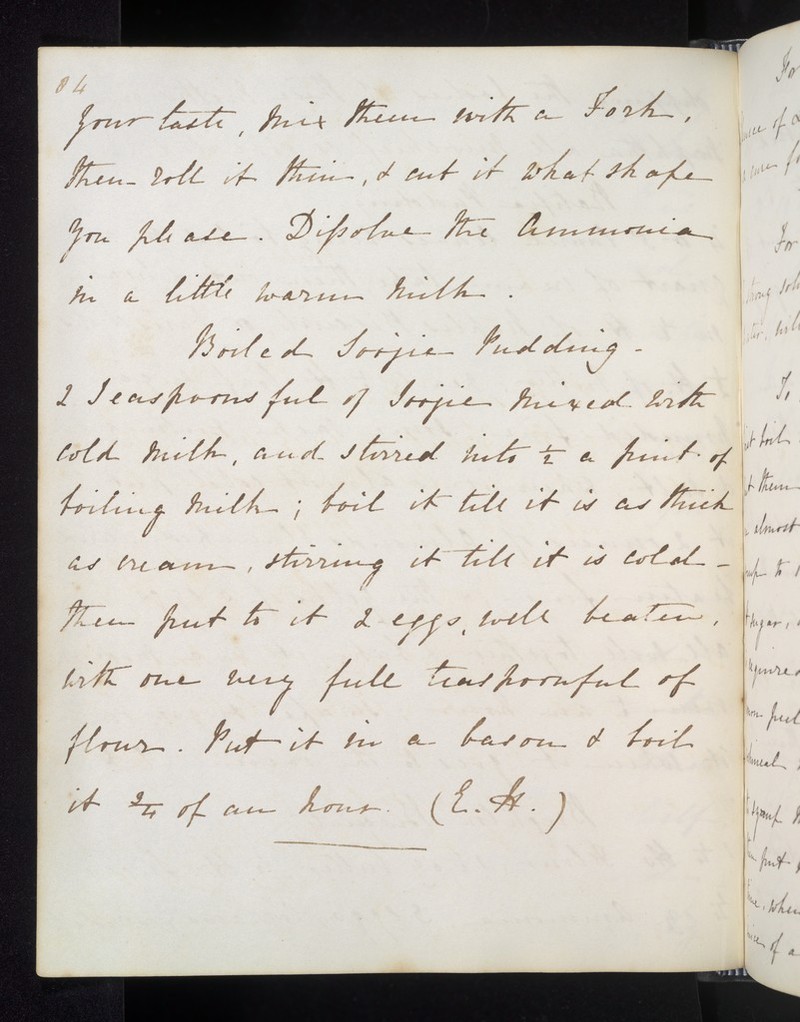 84
your taste, mix them with a Fork,
then roll it thin, & cut it what shape
you please. Dissolve the Ammonia
in a little warm milk.
Boiled Soojie Pudding -
2 Teaspoonsful of Soojie mixed with
cold milk, and stirred into ½ a pint of
boiling milk; boil it till it is as thick
as cream, stirring it till it is cold -
then put to it 2 eggs, well beaten,
with one very full teaspoonful of
flour. Put it in a bason & boil
it ¾ of an hour. (E. H.)